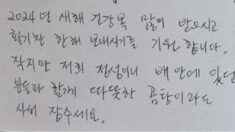 2024년 새해 건강복 많이 받으시고
활기찬 한해 보내시기를 기원 합니다.
작지만 저희 정성이니 배 안에 있는
분들과 함께 따뜻한 곰탕이라도
사서 잡수세요.